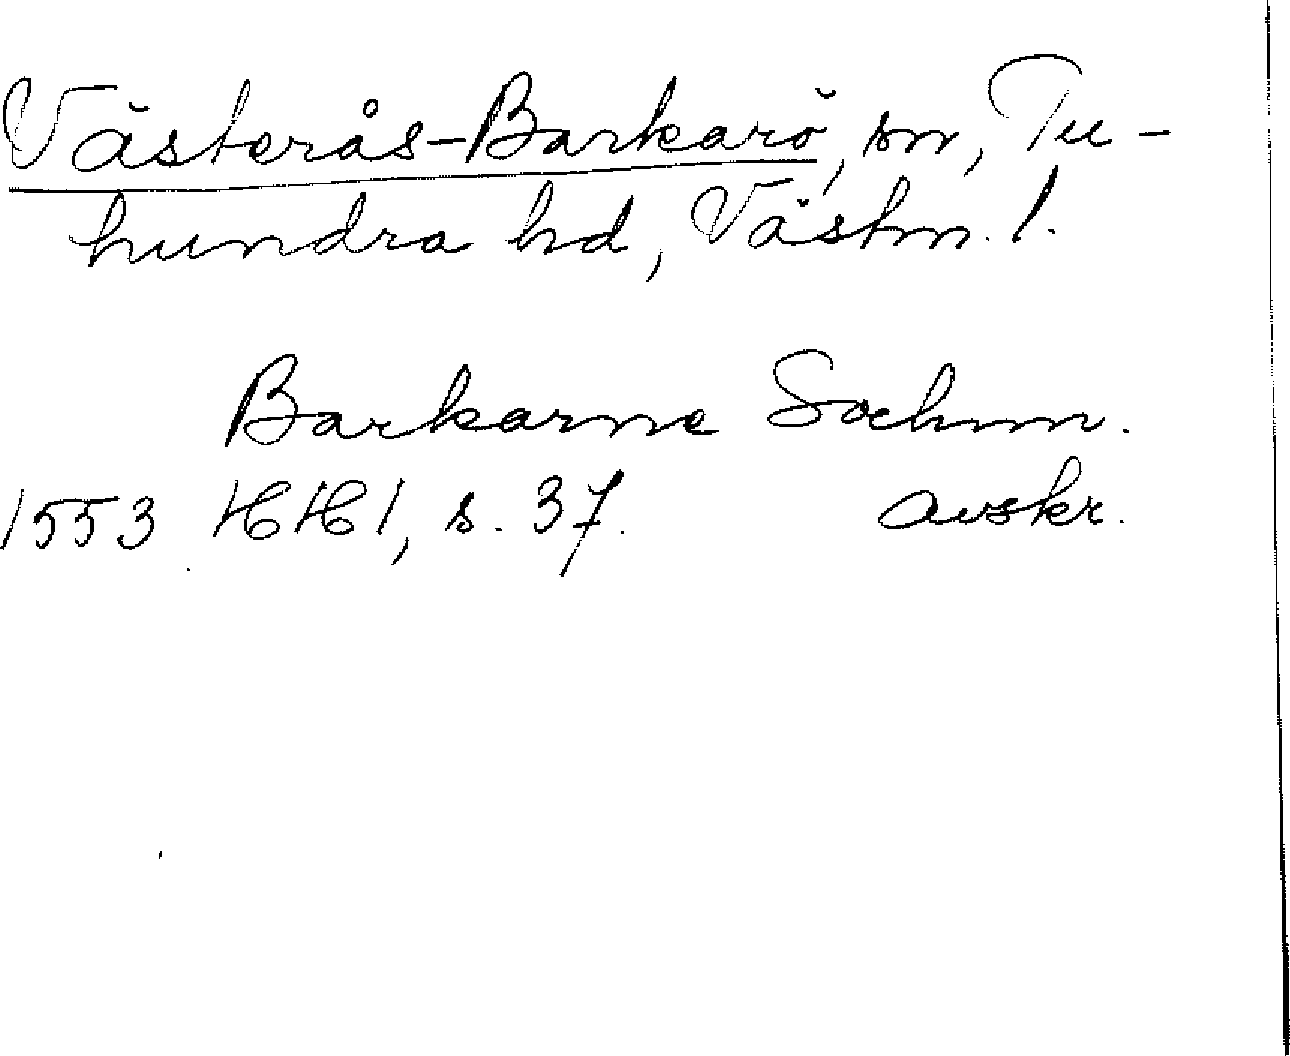 Västerås-Barkarö, sn, Tu-
hundra hd, Västm. l.
Barkarne Sochnn.
1553 HH 1, s. 37. avskr.